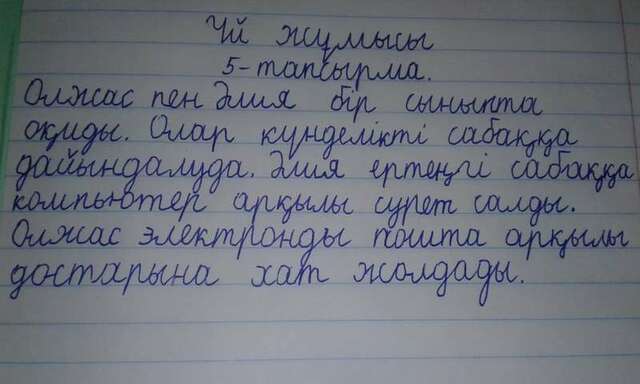 Үй жұмысы
5-тапсырма.
Олжас пен Әлия бір сыныпта
оқиды. Олар күнделікті сабаққа
дайындалуда Әлия ертеңгі сабаққа
компьютер арқылы сурет салды.
Олжас электронды пошта арқылы
достарына хат жолдады.